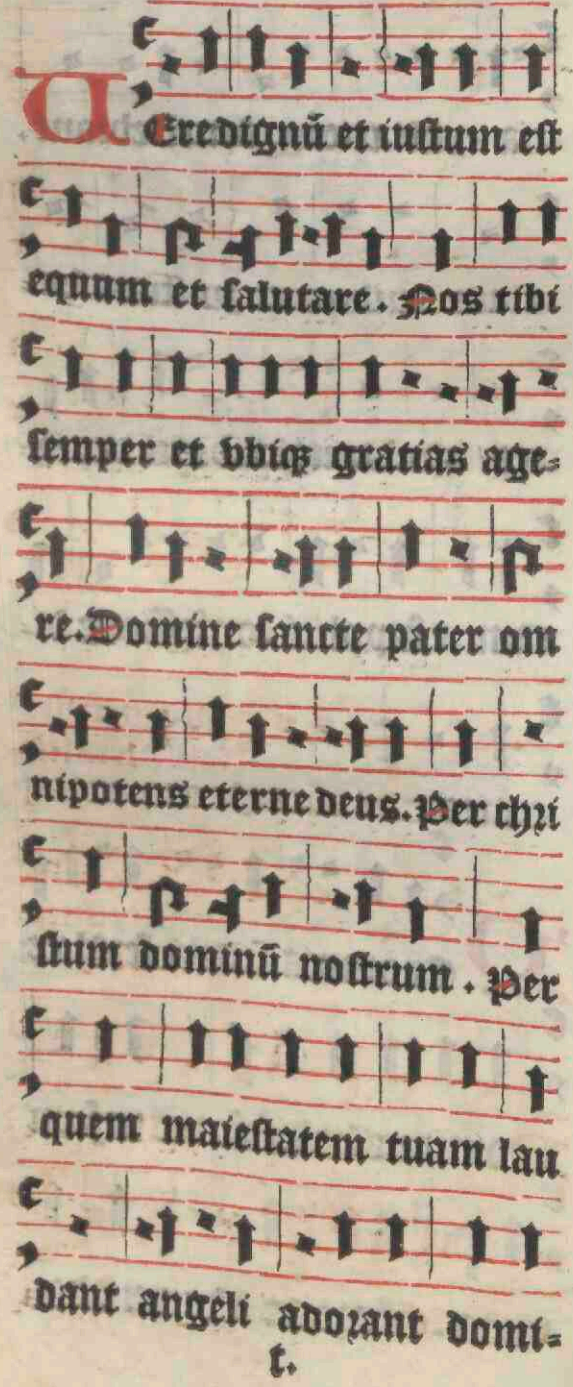 VEre dignū et iustum est
equum et salutare. Nos tibi
semper et vbiqꝫ gratias age=
re. Domine sancte pater om
nipotens eterne deus. Per chri
stum dominū nostrum. Per
quem maiestatem tuam lau
dant angeli adorant domi=
t.